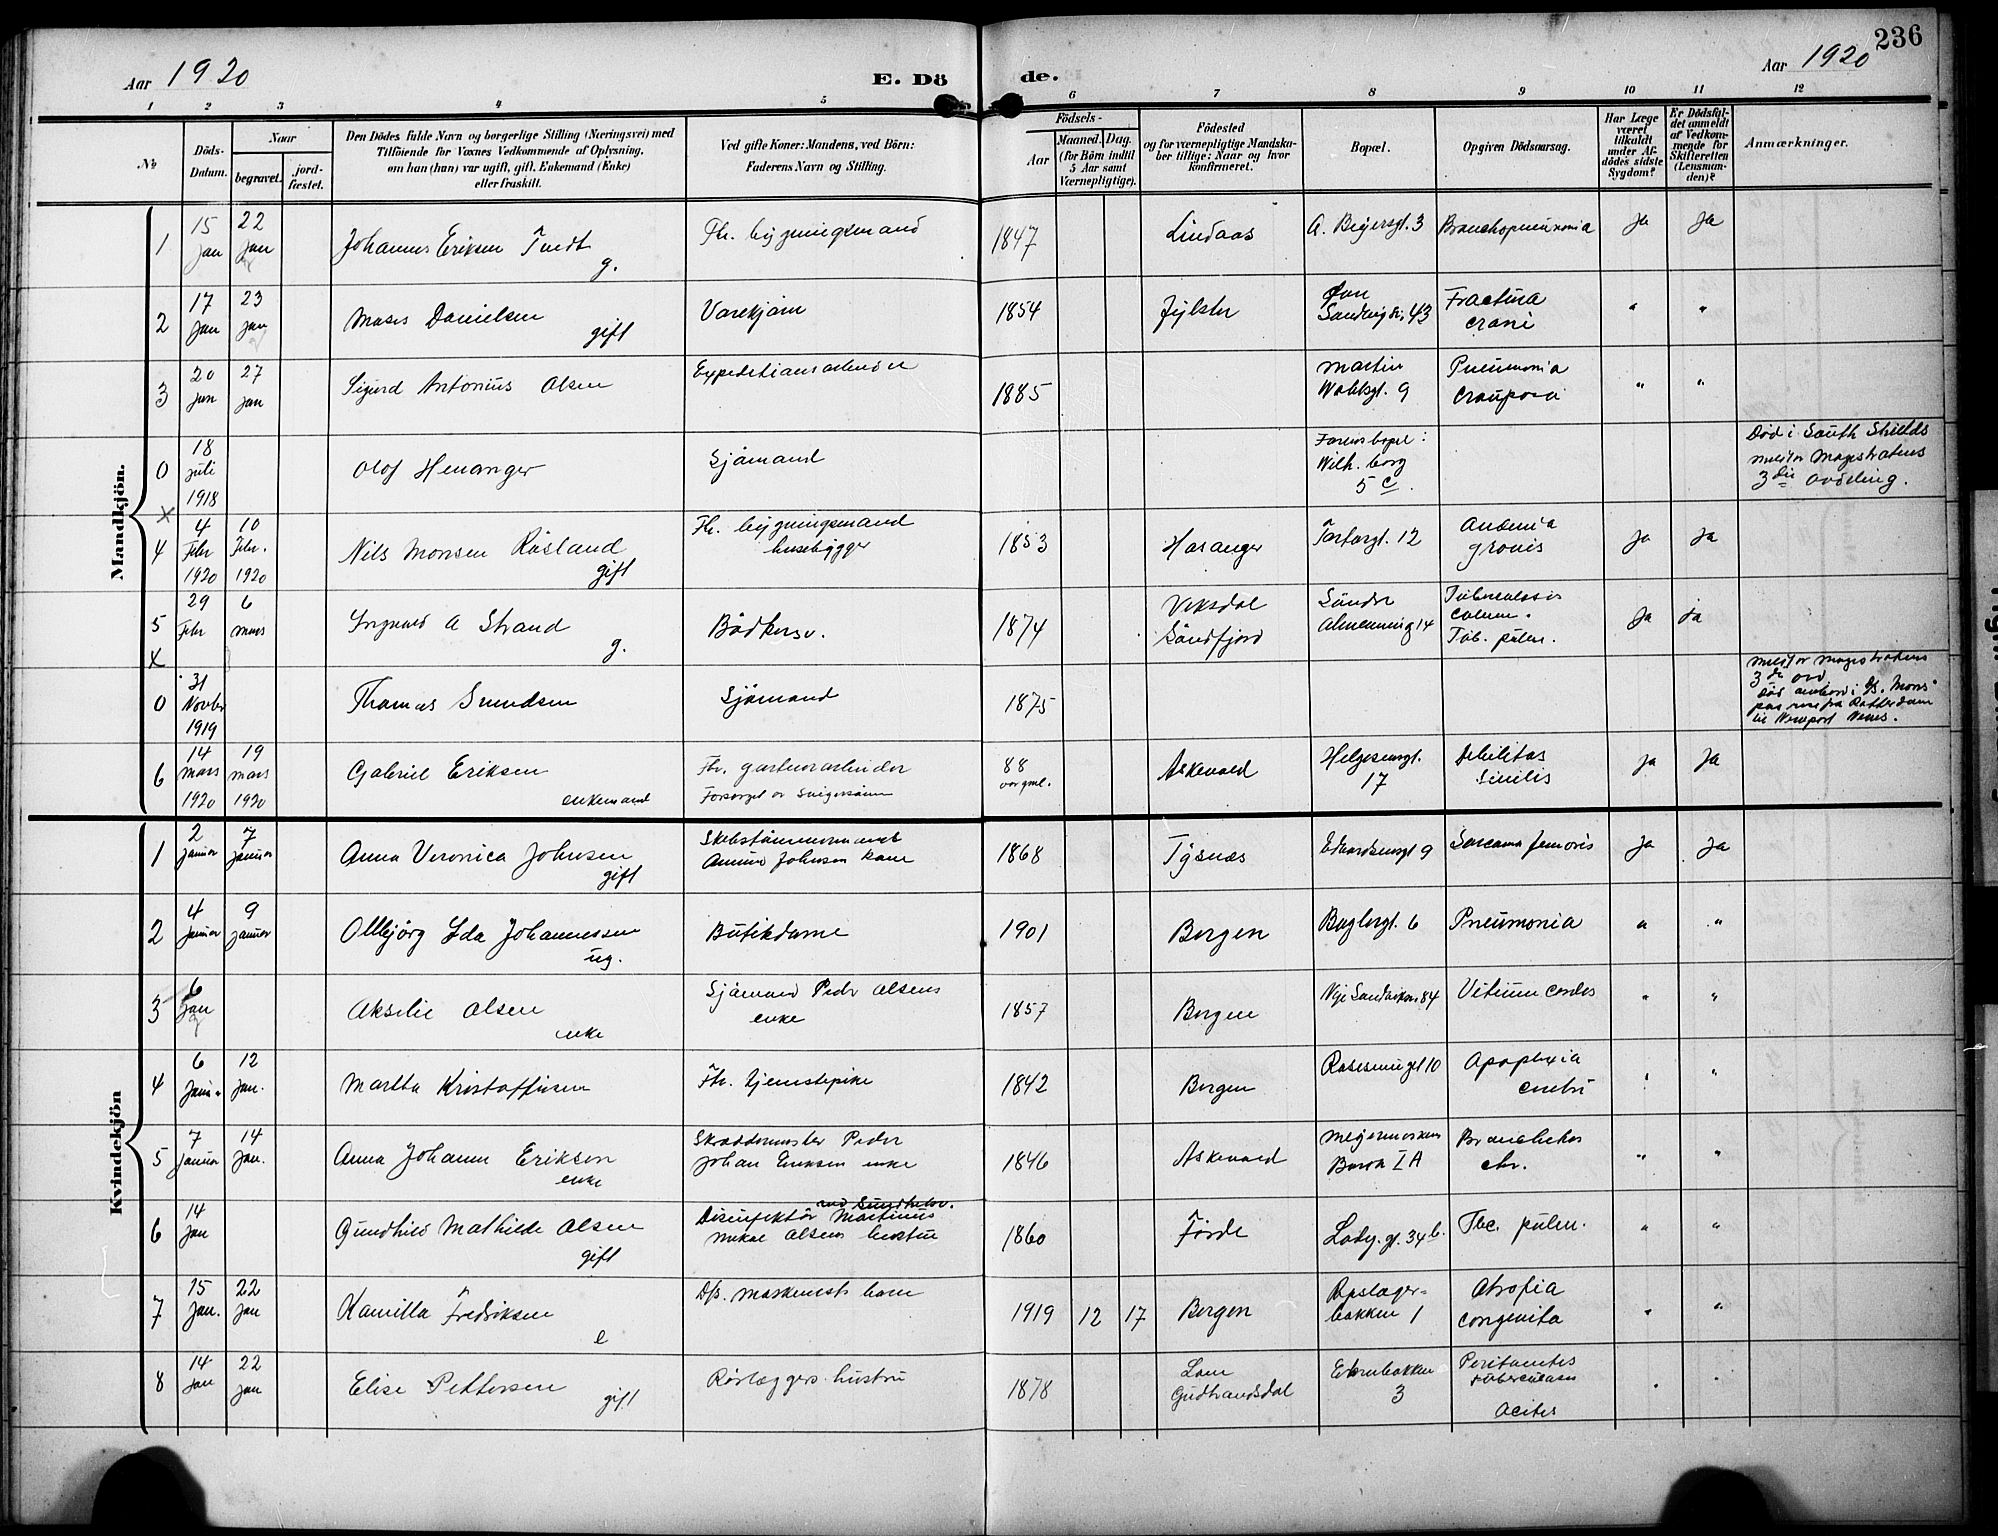 236
Aar 1920
E. Döde.
Aar 1920
1 2 3 4 5 6 7 8 9 10 11 12
No
Döds-Datum.
Naar
begravet.
jord-fæstet.
Den Dödes fulde Navn og borgerlige Stilling (Næringsvei) med
Tilföiende for Voxnes Vedkommende af Oplysning,
om han (hun) var ugift, gift, Enkemand (Enke)
eller fraskilt.
Ved gifte Koner: Mandens, ved Börn:
Faderens Navn og Stilling.
Födsels-
Aar
Maaned. Dag.
(for Börn indtil
5 Aar samt
Værnepligtige).
Födested
og for værnepligtige Mandska-
ber tillige: Naar og hvor
konfirmeret.
Bopæl.
Opgiven Dödsaarsag.
Har Læge
været
tilkaldt
under Af-
dödes sidste
Sygdom?
Er Dödsfal-
det anmeldt
af Vedkom-
mende for
Skifteretten
(Lensman-
den)?
Anmærkninger.
Mandkjön.
1 15 Jan 22 Jan Johannes Eriksen g. Fh. bygningsmand 1847 Lindaas A. Beijersgt. 3 Bronchopneumonia Ja Ja
2 17 Jan 23 Jan Moses Danielsen gift 1854 Jylster Sandvigsv. 43 Fractura crani " "
3 20 Jan 27 Jan Sigurd Antonius Olsen Expeditionsarbeider 1885 Martin Wahlsgt. 9 Pneumonia crouposa " "
0 18 juli 1918 Olof Henanger Sjømand Wilh. borg 5 c. Død i South Shields 3die avdeling.
x
4 4 Febr 1920 10 Febr. 1920 Nils Monsen Røsland gift Fh. bygningsmand husebygger 1853 Hosanger Torborgt. 12 Anæmia gravis Ja Ja
5 29 Febr 6 mars A Strand g. Bødkersv. 1874 Viksdal Søndfjord Søndre Almenning 14 Tuberculosis column. Tub. pulm. Ja ja
x
0 31 Novbr 1919 Thomas Smundsen Sjømand 1875 3die avd fra Rotterdam til Newport News.
6 14 mars 1920 19 mars 1920 Gabriel Eriksen enkemand Fhv. Forsørget av Svigersønn 88 aar gml. Askevold Helgesensgt. 17 Debilitas Senilis Ja Ja
Kvindekjön
1 2 Januar 7 Januar Anna Veronica Johnsen gift Johnsen Kone 1868 Tysnæs Edvardsensgt 9 Sarcoma femoris Ja Ja
2 4 Januar 9 Januar Ollbjørg Ida Johannessen ug. Butikdame 1901 Bergen Baglergt. 6 Pneumonia " "
3 6 Jan Akselie Olsen enke Sjømand Peder Olsens enke 1857 Bergen Nye Sandviksv 84 Vitium cordis " "
4 6 Janu. 12 Jan. Martha Kristoffersen Fh. tjenestepike 1842 Bergen Rosesmuget 10 Apoplexia cerebri " "
5 7 Januar 14 Jan. Anna Johanne Eriksen enke Skræddermester Peder Johan Eriksen enke 1846 Askevold Barak I A Bronchitis chr. " "
6 14 Jan Gundhild Mathilde Olsen gift Disinfektør ved Sundhetsv. Martinus Mikal Olsens hustru 1860 Førde Ladeg. gt. 34 b. Tbc. pulm. " "
7 15 Jan. 22 Jan Kamilla Fredriksen e Dsp. maskinist barn 1919 12 17 Bergen Repslager-bakken 1 Atrofia congenita " "
8 14 Jan 22 Jan Elise Pettersen gift Rørlæggers hustru 1878 Lom Gudbrandsdal 3 Peritonitis tuberculosa Acites " "